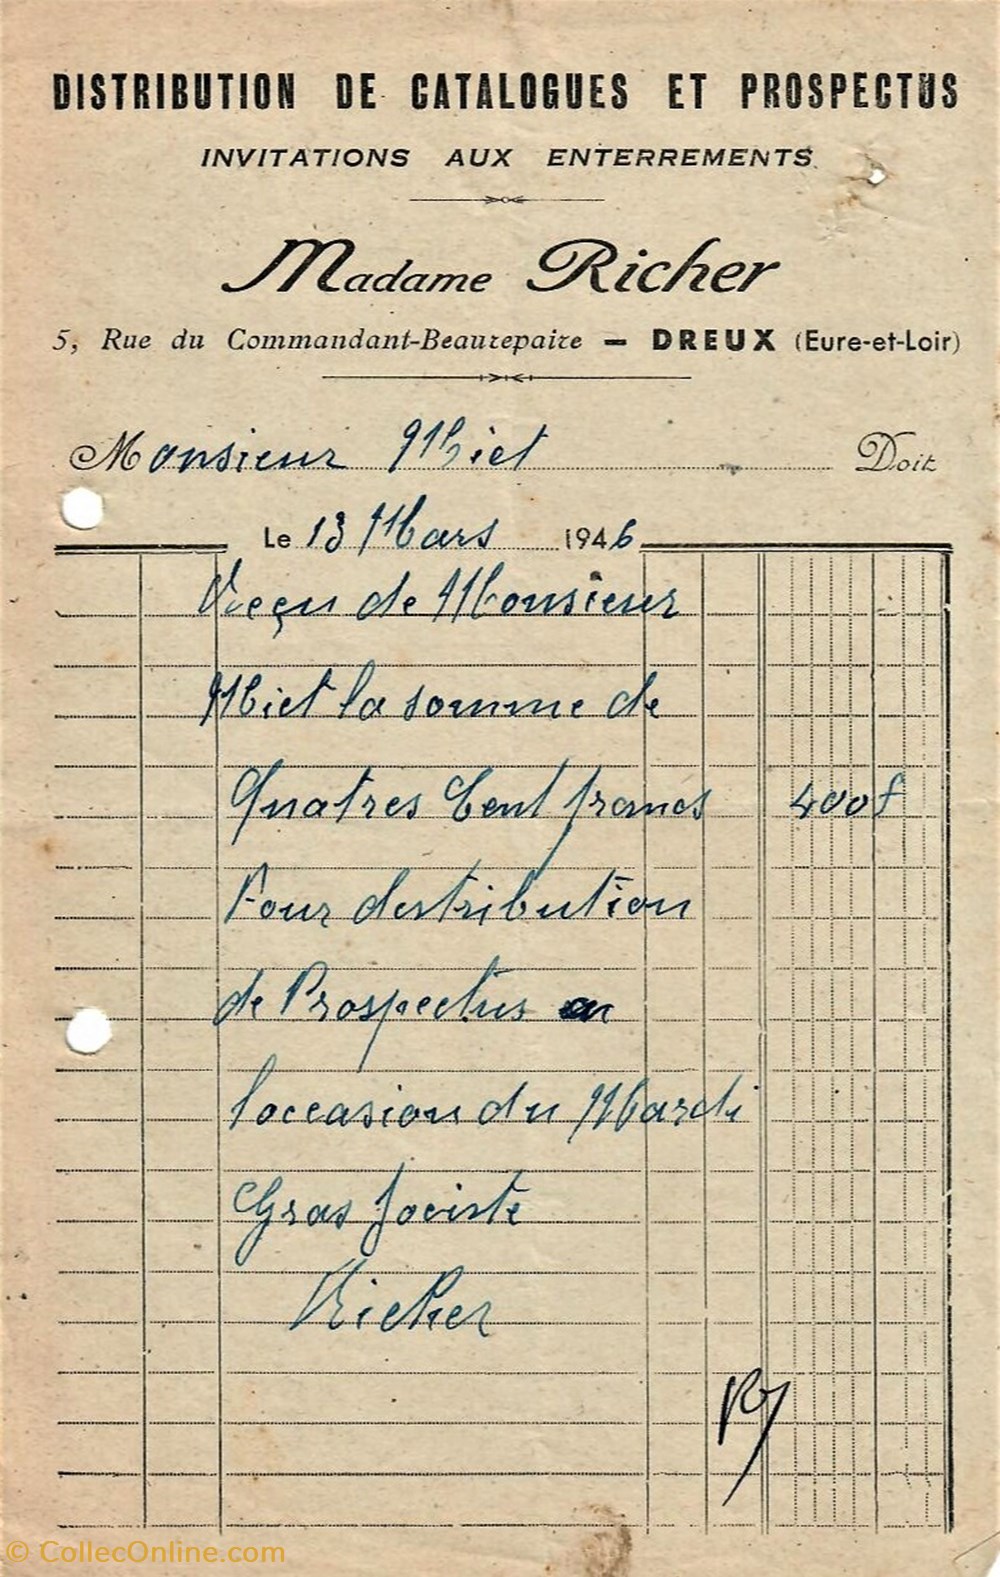 DISTRIBUTION DE CATALOGUES ET PROSPECTUS
INVITATIONS AUX ENTERREMENTS
Madame Richer
5, Rue du Commandant-Beaurepaire - DREUX (Eure-et-Loir)
Monsieur Miet Doit
Le 13 Mars 1946
Reçu de Monsieur
Miet la somme de
Quatres Cent francs 400f
Pour destribution
de Prospectus
l'occasion du Mardi
Gras Jociste
Richer
© CollecOnline.com